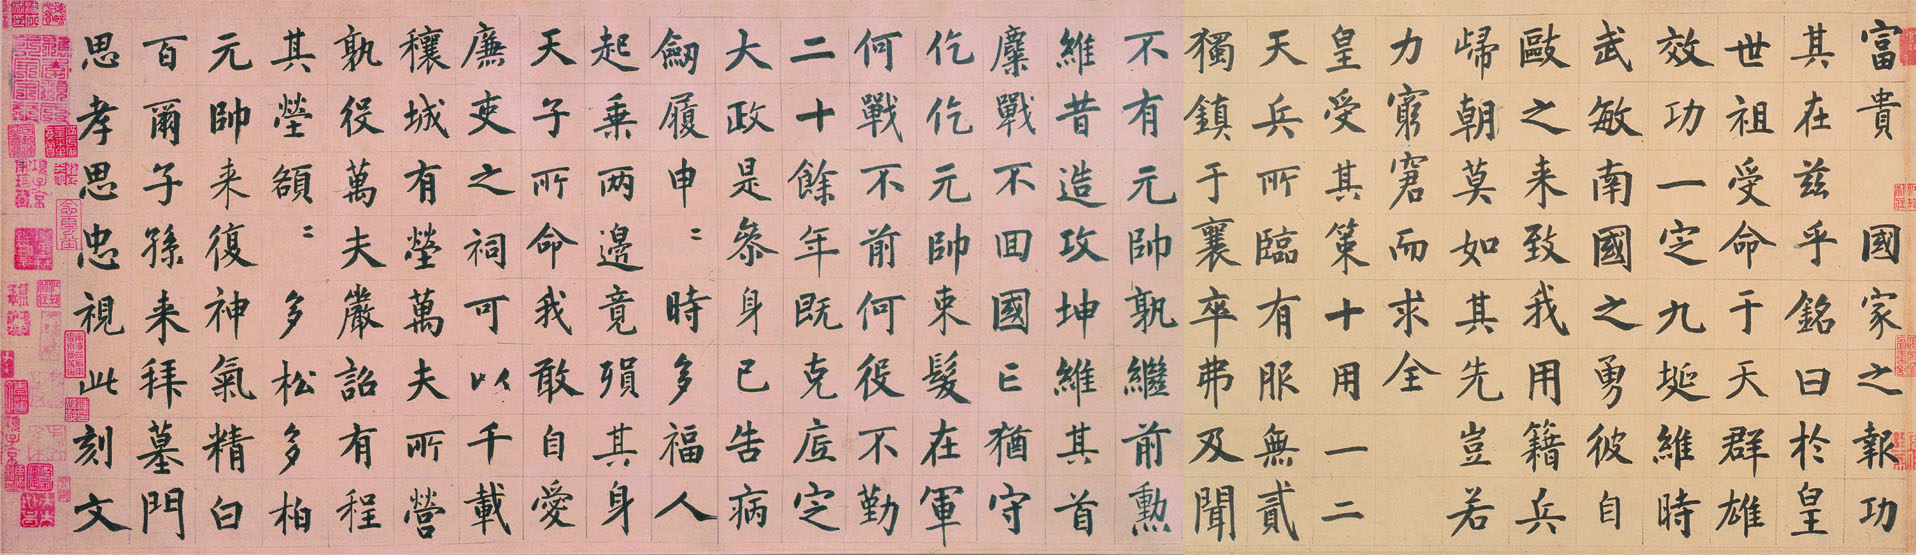 富貴國家之報功
其在兹乎銘曰於皇
世祖受命于天群雄
效功一定九埏維時
武敏南國之勇彼自
歐之来致我用籍兵
歸朝莫如其先豈若
力窮窘而求全
皇受其策十用一二
天兵所臨有服無貳
獨鎮于襄卒弗及聞
不有元帥孰繼前勲
維昔造攻坤維其首
麇戰不回國亡猶守
仡仡元帥束髮在軍
何戰不前何役不勤
二十餘年既克底定
大政是叅身已告病
劒履申〻時多福人
起乗两邊竟殞其身
天子所命我敢自愛
廉吏之祠可以千載
穰城有塋萬夫所營
孰役萬夫嚴詔有程
其塋額〻多松多柏
元帥来復神氣精白
百爾子孫来拜墓門
思孝思忠視此刻文